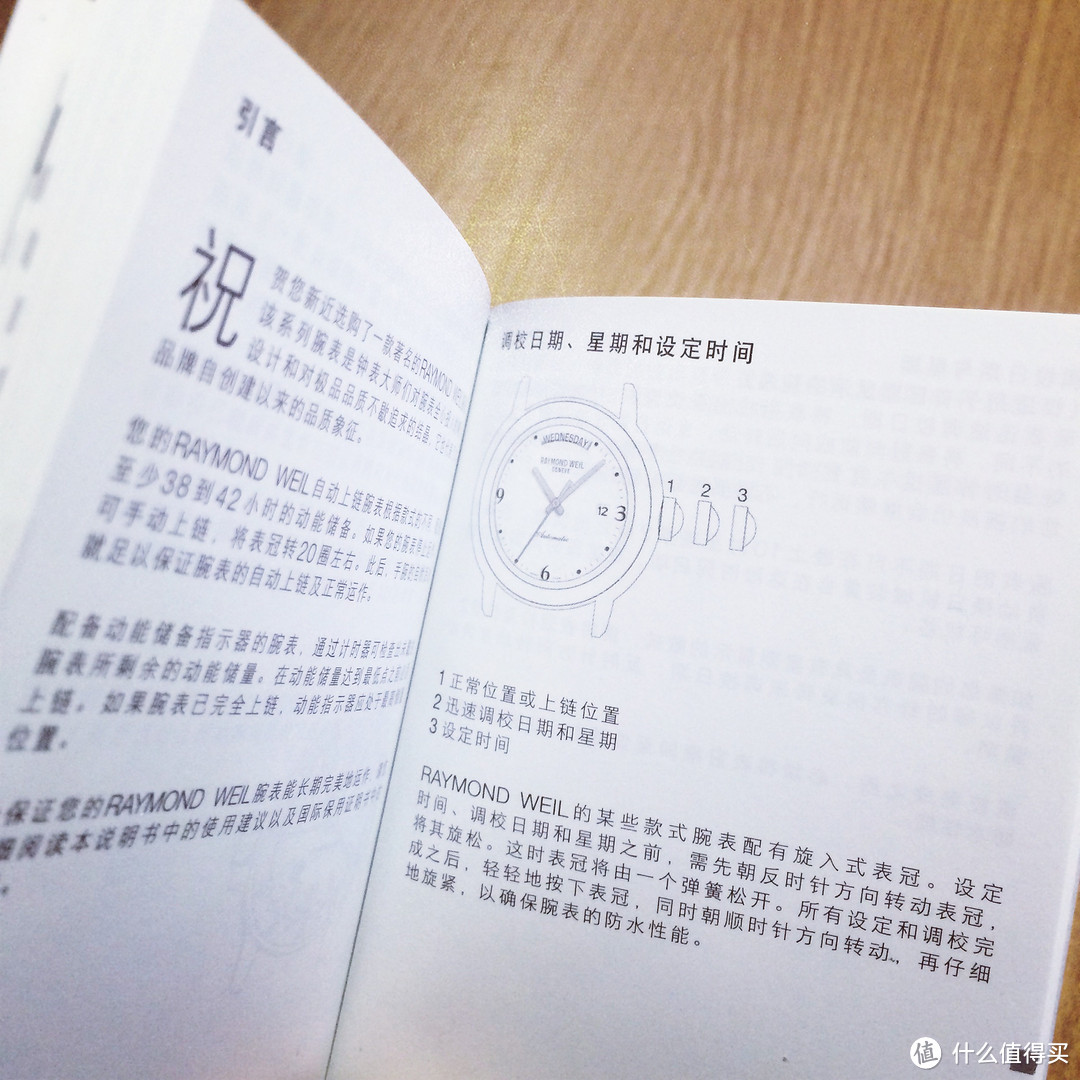 引言
祝
贺您新近选购了一款著名的RAYMOND WEIL
该系列腕表是钟表大师们对腕表
设计和对极品品质不歇追求的结晶，
品牌自创建以来的品质象征。
您的RAYMOND WEIL自动上链腕表根据款式的不同，
至少38到42小时的动能储备。如果您的腕表
可手动上链，将表冠转20圈左右。此后，手腕的
就足以保证腕表的自动上链及正常运作。
配备动能储备指示器的腕表，通过计时器可检查出
腕表所剩余的动能储量。在动能储量达到最低点之前
上链。如果腕表已完全上链，动能指示器应处于
位置。
保证您的RAYMOND WEIL腕表能长期完美地运作，
细阅读本说明书中的使用建议以及国际保用证明书中
。
调校日期、星期和设定时间
WEDNESDAY
RAYMOND WEIL
GENEVE
9
12 3
Automatic
6
1 2 3
1 正常位置或上链位置
2 迅速调校日期和星期
3 设定时间
RAYMOND WEIL的某些款式腕表配有旋入式表冠。设定
时间、调校日期和星期之前，需先朝反时针方向转动表冠，
将其旋松。这时表冠将由一个弹簧松开。所有设定和调校完
成之后，轻轻地按下表冠，同时朝顺时针方向转动，再仔细
地旋紧，以确保腕表的防水性能。
值 什么值得买